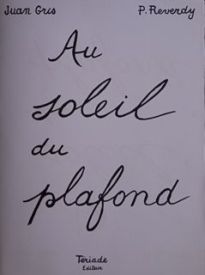 Juan Gris P. Reverdy
Au
soleil
du
plafond
Tériade
Éditeur